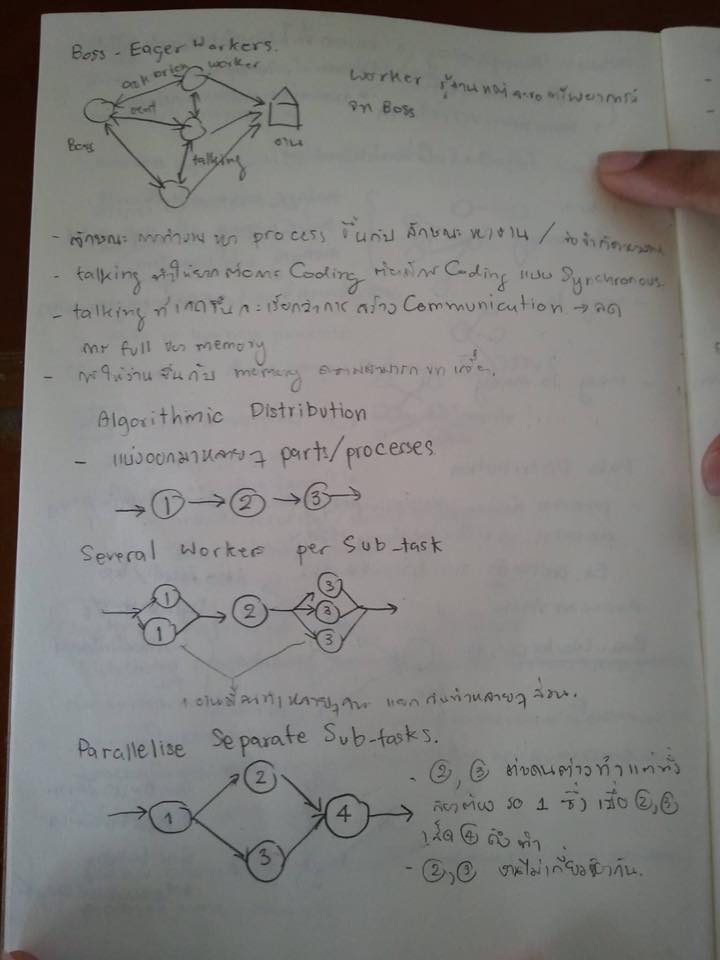 Boss - Eager Workers.
worker
ask
Boss
talking
งาน
Worker รู้งานหมดและขอทรัพยากรจาก
จาก Boss
- ลักษณะ การทำงาน ของ process ขึ้นกับ ลักษณะของงาน /
- talking ทำให้ยากต่อการ Coding ต้องมีการ Coding แบบ Synchronous
- talking ที่เกิดขึ้น จะเรียกว่าการ สร้าง Communication → ลด
การ full ของ memory
- การใช้งานขึ้นกับ memory ความสามารถของเครื่อง.
Algorithmic Distribution
- แบ่งออกมาหลายๆ parts/processes
→ 1 → 2 → 3 →
Several Workers per Sub-task
1 3
2 3
1 3
1 งานมีคนทำหลายๆคน แยกกันทำหลายๆ ส่วน.
Parallelise Separate Sub-tasks.
2
1 4
3
- ②, ③ ต่างคนต่างทำแต่ทั้ง
สองต้อง รอ 1 ซึ่ง เมื่อ ②, ③
เสร็จ ④ ถึงทำ
- ②, ③ งานไม่เกี่ยวข้องกัน.